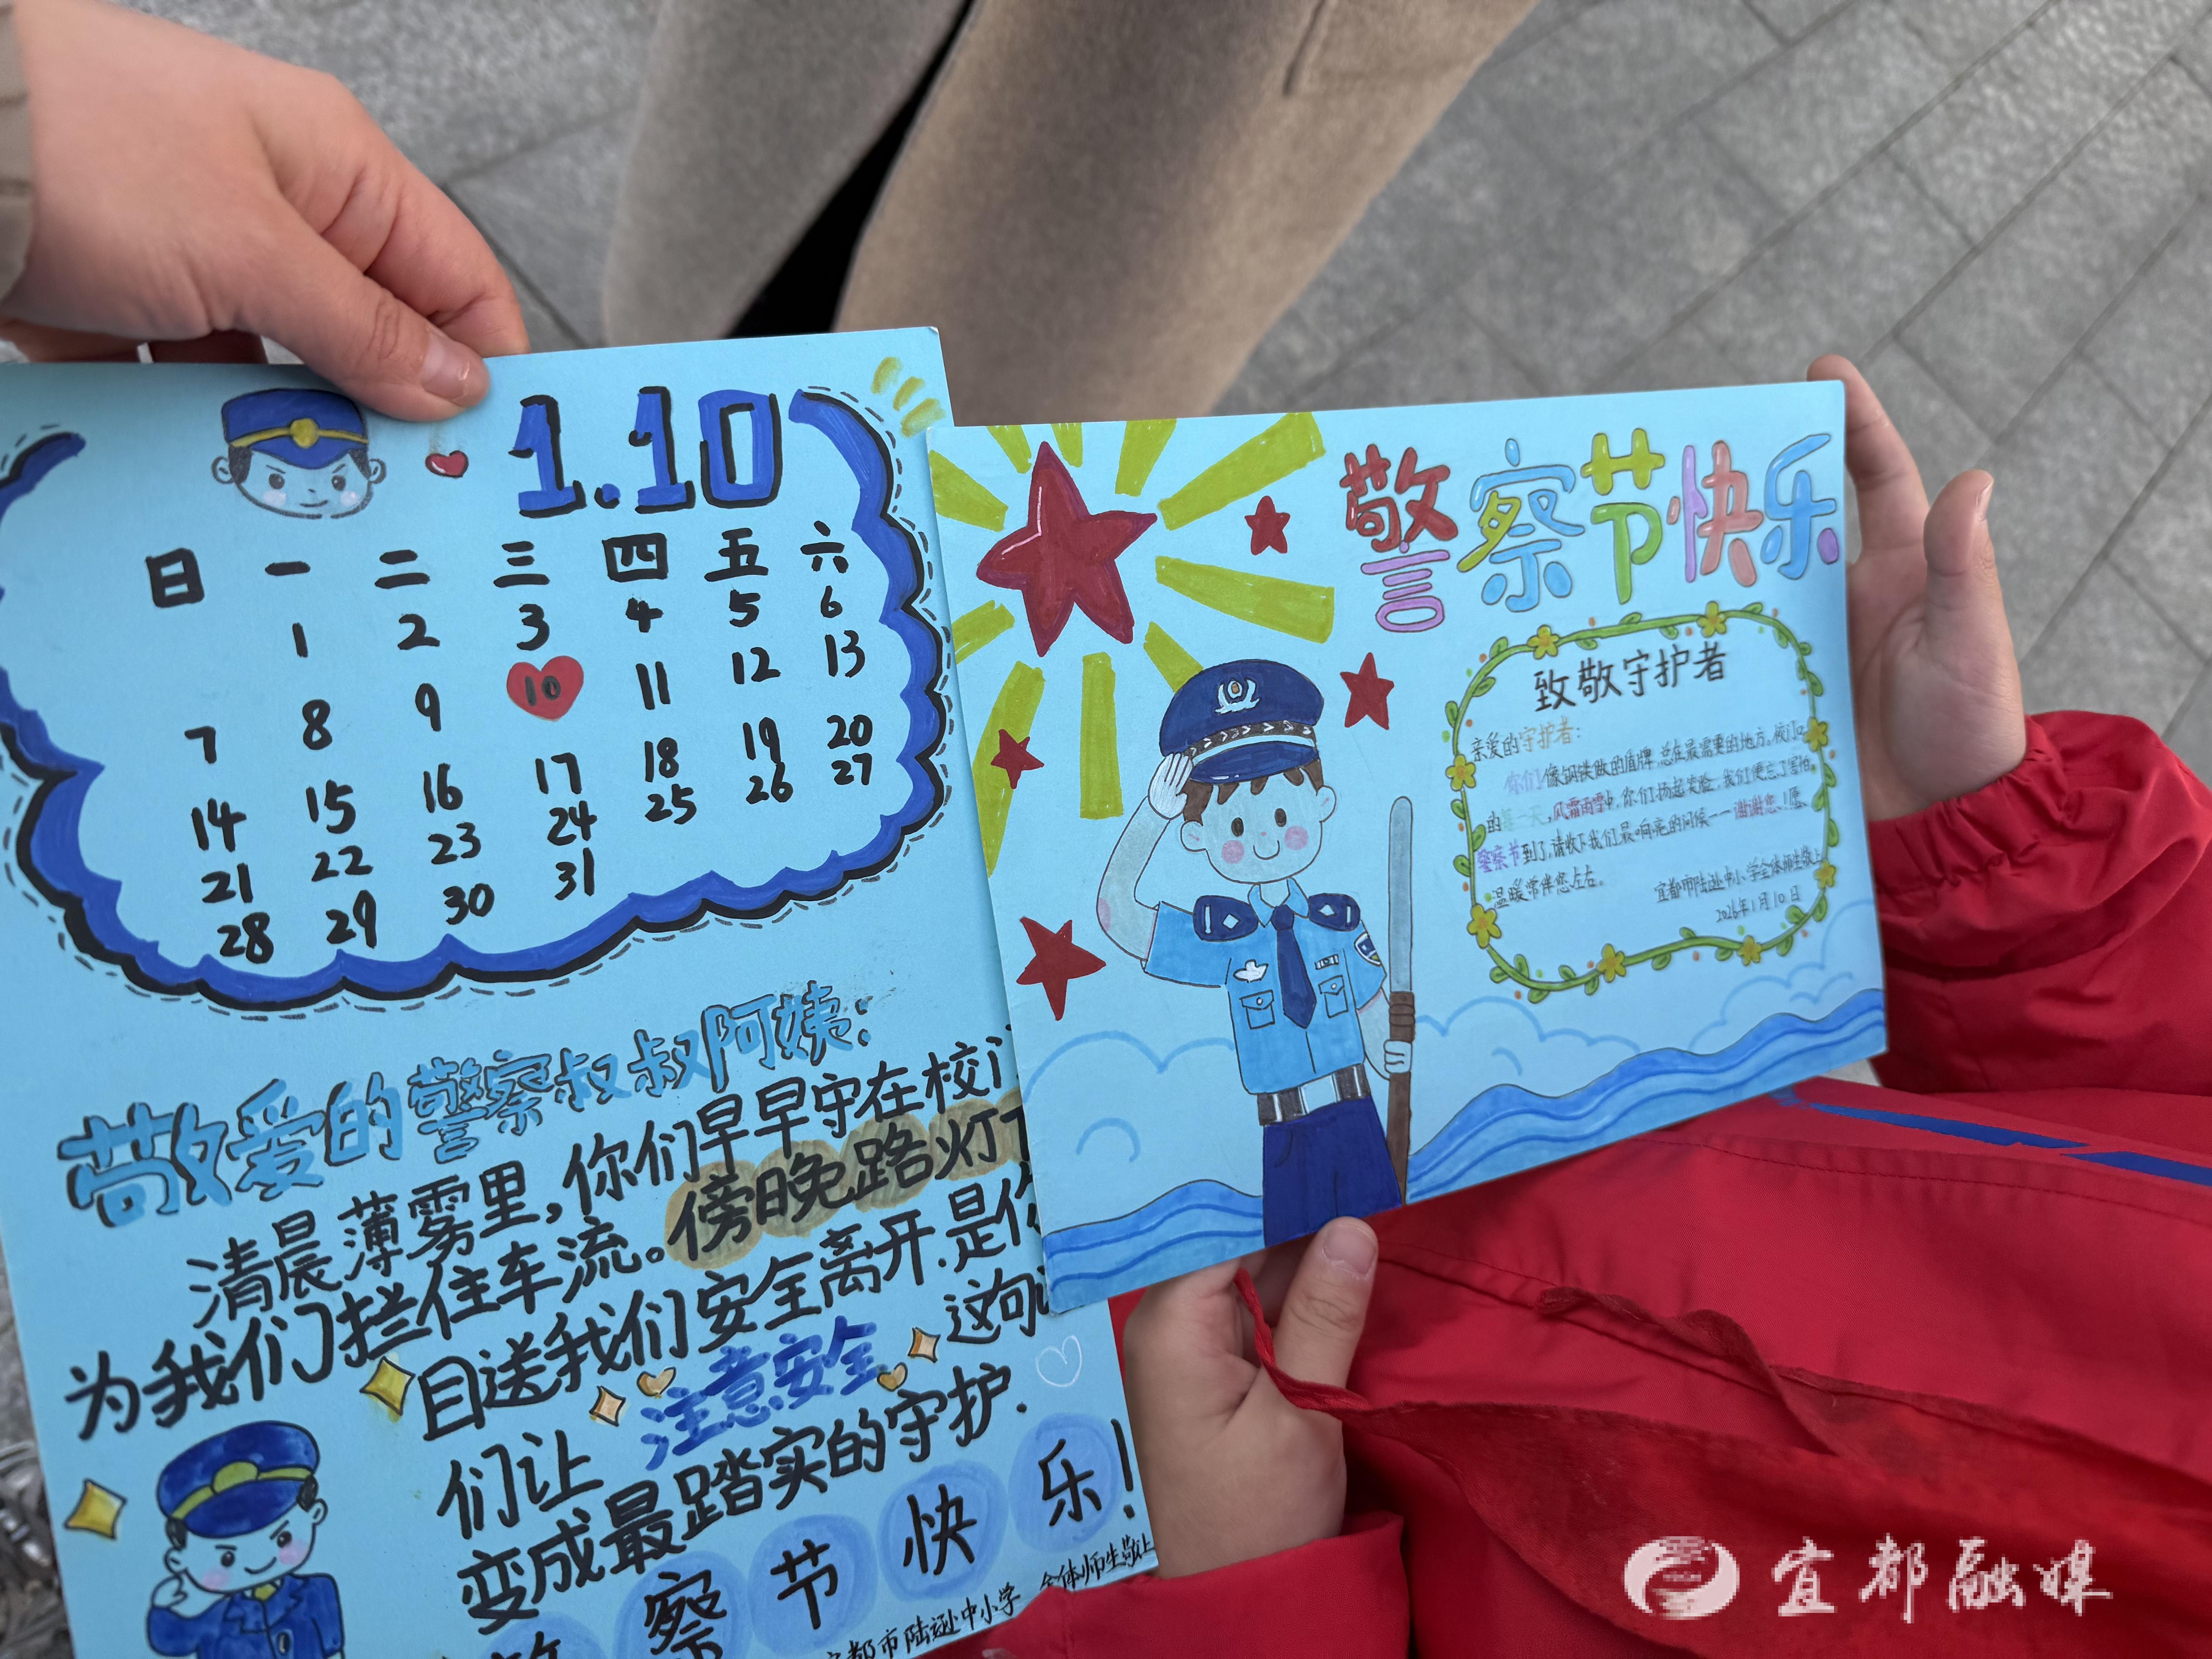 1.10
日 一 二 三 四 五 六
1 2 3 4 5 6
7 8 9 10 11 12 13
14 15 16 17 18 19 20
21 22 23 24 25 26 27
28 29 30 31
敬爱的警察叔叔阿姨:
清晨薄雾里,你们早早守在校
为我们拦住车流。傍晚路灯下
目送我们安全离开.是你
们让 注意安全 这句
变成最踏实的守护.
察节快乐!
市陆逊中小学 全体师生敬上
警察节快乐
致敬守护者
亲爱的守护者:
你们像钢铁做的盾牌,总在最需要的地方。校门口
的每一天,风霜雨雪中,你们扬起笑脸,我们便忘了害怕。
警察节到了,请收下我们最响亮的问候——谢谢您!愿
温暖常伴您左右。
宜都市陆逊中小学全体师生敬上
2026年1月10日
宜都融媒